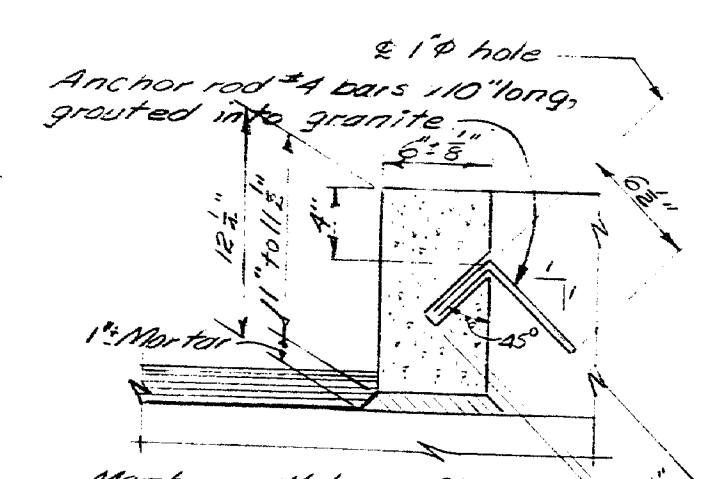 ℄ 1"Φ hole
Anchor rod #4 bars x10" long,
grouted into granite
6" ± 1/8"
6 1/2"
4"
12 1/2"
11" to 11 1/2"
1
1
1"± Mortar
45°